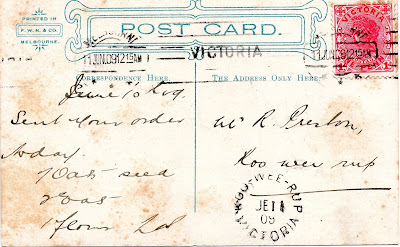 PRINTED IN
F.W.N. & CO.
MELBOURNE.
POST CARD.
VICTORIA
MELBOURNE
11 JUN.09 12 15AM
VICTORIA
11 JUN.09 12 15AM
CORRESPONDENCE HERE.
THE ADDRESS ONLY HERE.
June 10 09
Sent your order
today
7 Oats seed
2 Oats
1 flour
Mr R. Preston,
Koo wee rup
KOO-WEE-RUP
JE 11
09
VICTORIA